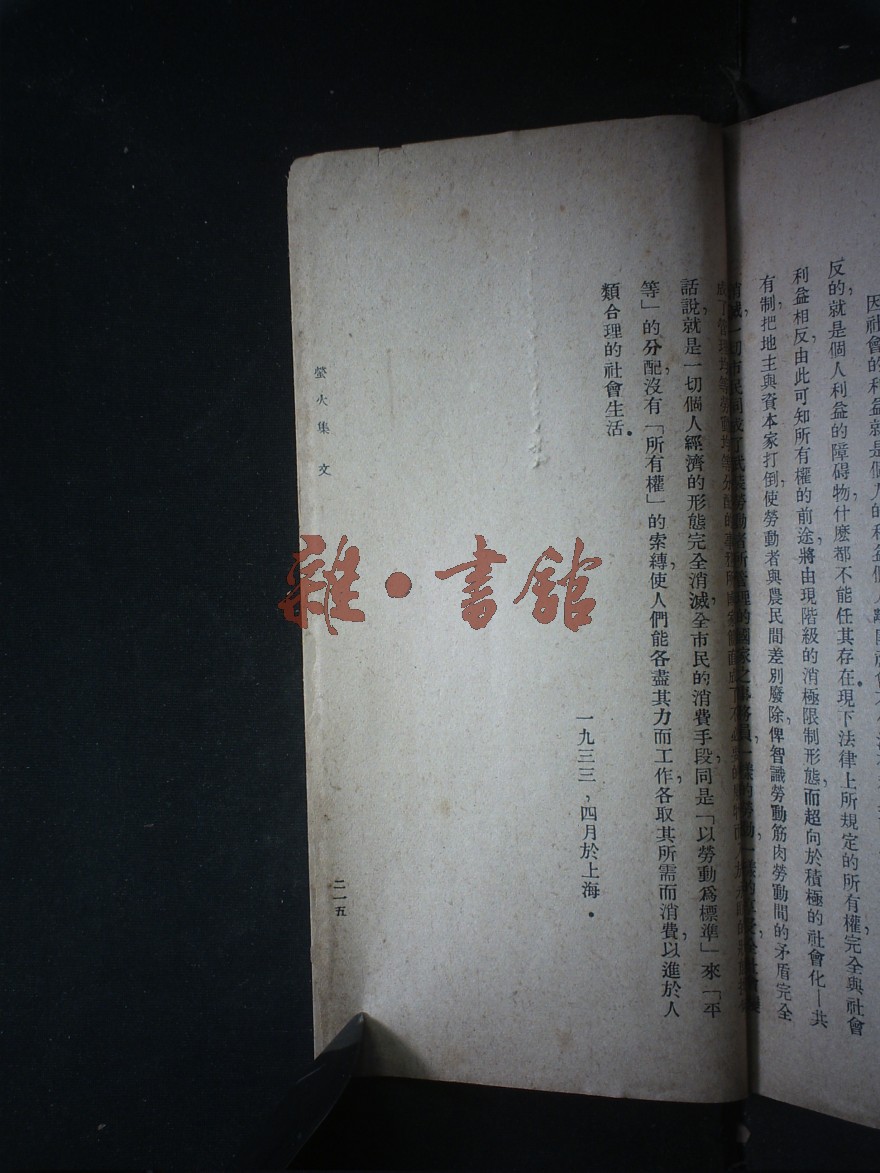 因社會的利益就是個人的利益個人離開社會
反的，就是個人利益的障碍物什麽都不能任其存在。現下法律上所規定的所有權，完全與社會
利益相反，由此可知所有權的前途，將由現階級的消極限制形態，而超向於積極的社會化—共
有制，把地主與資本家打倒，使勞動者與農民間差別廢除，俾智識勞動筋肉勞動間的矛盾完全
消滅，一切市民同成了武裝勞動者所管理的國家之事務員，一樣的勞動，一樣的
成了管理均等勞動均等分配的
話說，就是一切個人經濟的形態完全消滅，全市民的消費手段，同是「以勞動爲標準」，來「平
等」的分配，沒有「所有權」的索縛，使人們能各盡其力而工作，各取其所需而消費，以進於人
類合理的社會生活。
一九三三，四月於上海。
螢火集 文
二一五
雜·書館